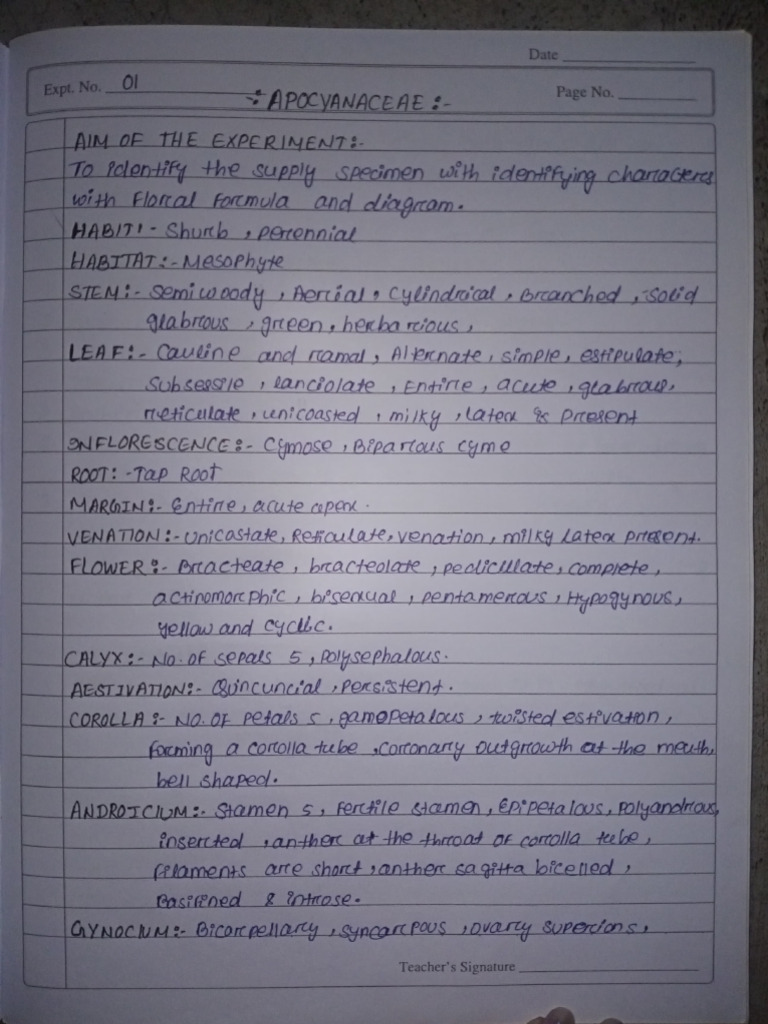 Date
Expt. No. 01
-: APOCYANACEAE :-
Page No.
AIM OF THE EXPERIMENT:-
To identify the supply specimen with identifying characters
with Floral Formula and diagram.
HABIT:- Shurb, perennial
HABITAT:- Mesophyte
STEM:- Semiwoody, Aerial, Cylindrical, Branched, Solid
glabrous, green, herbarcious,
LEAF:- Cauline and ramal, Alternate, simple, estipulate,
Subsessile, lanciolate, Entire, acute, glabrous,
reticulate, unicoasted, milky, latex is present
INFLORESCENCE:- Cymose, Biparious cyme
ROOT:- Tap Root
MARGIN:- Entire, acute apex.
VENATION:- Unicastate, Reticulate, venation, milky latex present.
FLOWER:- Bracteate, bracteolate, pedicillate, complete,
actinomorphic, bisexual, pentamerous, Hypogynous,
yellow and cyclic.
CALYX:- No. of sepals 5, polysephalous.
AESTIVATION:- Quincuncial, persistent.
COROLLA:- No. of petals 5, gamopetalous, twisted estivation,
forming a corolla tube, coronary outgrowth at the mouth,
bell shaped.
ANDROICIUM:- Stamen 5, fertile stamen, Epipetalous, polyandrious,
inserted, anther at the throat of corolla tube,
filaments are short, anther sagitta bicelled,
Basifined & introse.
GYNOCIUM:- Bicarpellary, syncarpous, ovary supercions,
Teacher's Signature